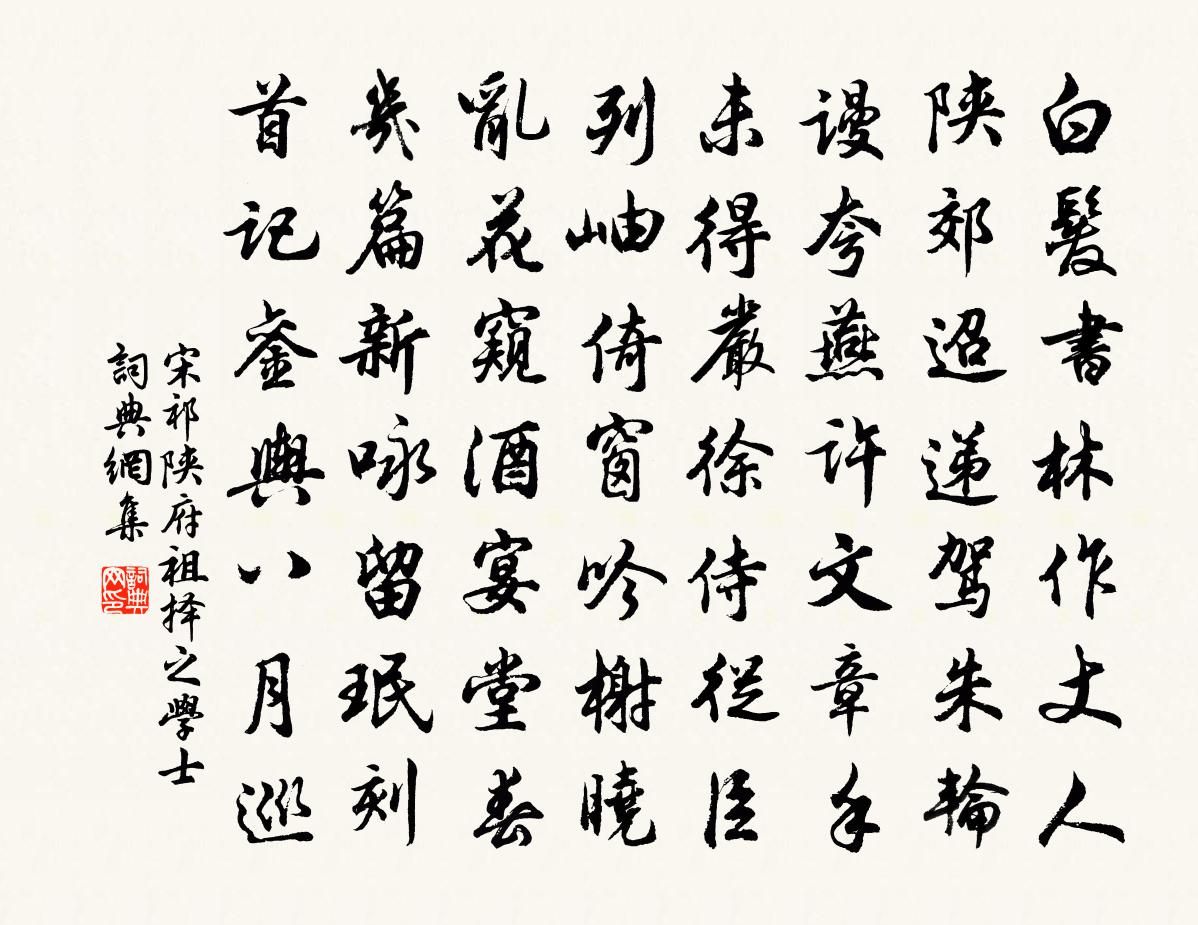 白髮書林作丈人
陝郊迢遞駕朱輪
謾夸燕許文章手
未得嚴徐侍從臣
列岫倚窗吟榭曉
亂花窺酒宴堂春
幾篇新咏留珉刻
首記銮輿八月巡
宋祁陝府祖择之學士
詞典網集
詞典网印